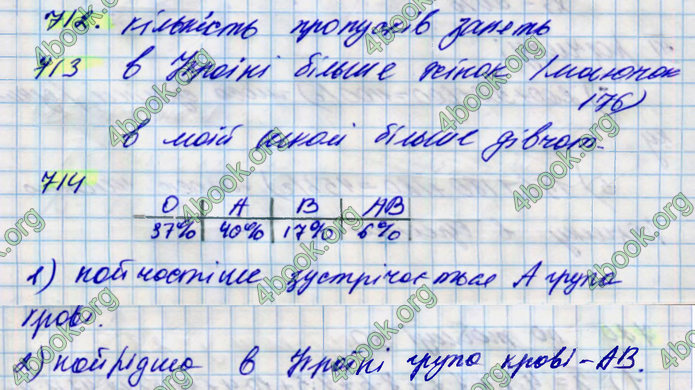 712. кількість пропусків занять
713 в Україні більше жінок (малюнок
176)
в моїй школі більше дівчат
714
O A B AB
37% 40% 17% 6%
1) найчастіше зустрічається А група
крові.
2) найрідша в Україні група крові - АВ.
4book.org